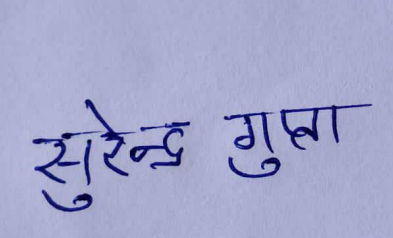 सुरेन्द्र गुप्ता